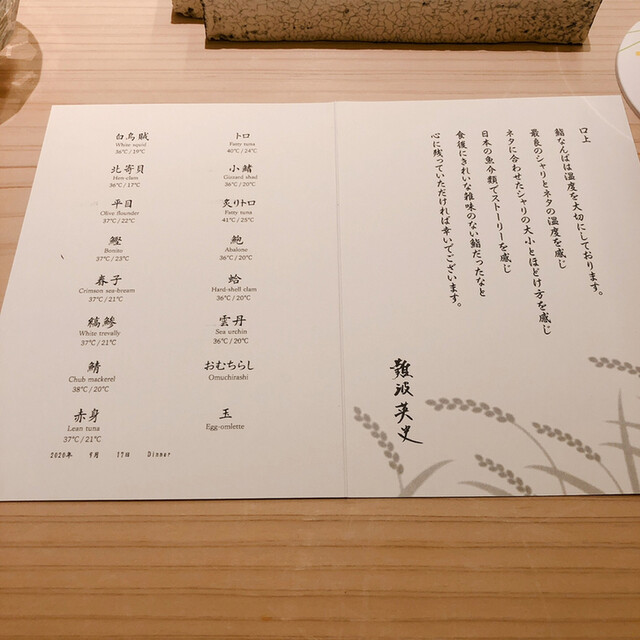 白烏賊
White squid
36℃/19℃
北寄貝
Hen-clam
36℃/17℃
平目
Olive flounder
37℃/22℃
鰹
Bonito
37℃/23℃
春子
Crimson sea-bream
37℃/21℃
縞鯵
White trevally
37℃/21℃
鯖
Chub mackerel
38℃/20℃
赤身
Lean tuna
37℃/21℃
トロ
Fatty tuna
40℃/24℃
小鰭
Gizzard shad
36℃/20℃
炙りトロ
Fatty tuna
41℃/25℃
鮑
Abalone
36℃/20℃
蛤
Hard-shell clam
36℃/20℃
雲丹
Sea urchin
36℃/20℃
おむちらし
Omuchirashi
玉
Egg-omlette
2020年 9月 17日 Dinner
口上
鮨なんばは温度を大切にしております。
最良のシャリとネタの温度を感じ
ネタに合わせたシャリの大小とほどけ方を感じ
日本の魚介類でストーリーを感じ
食後にきれいな雑味のない鮨だったなと
心に残っていただければ幸いでございます。
難波英史